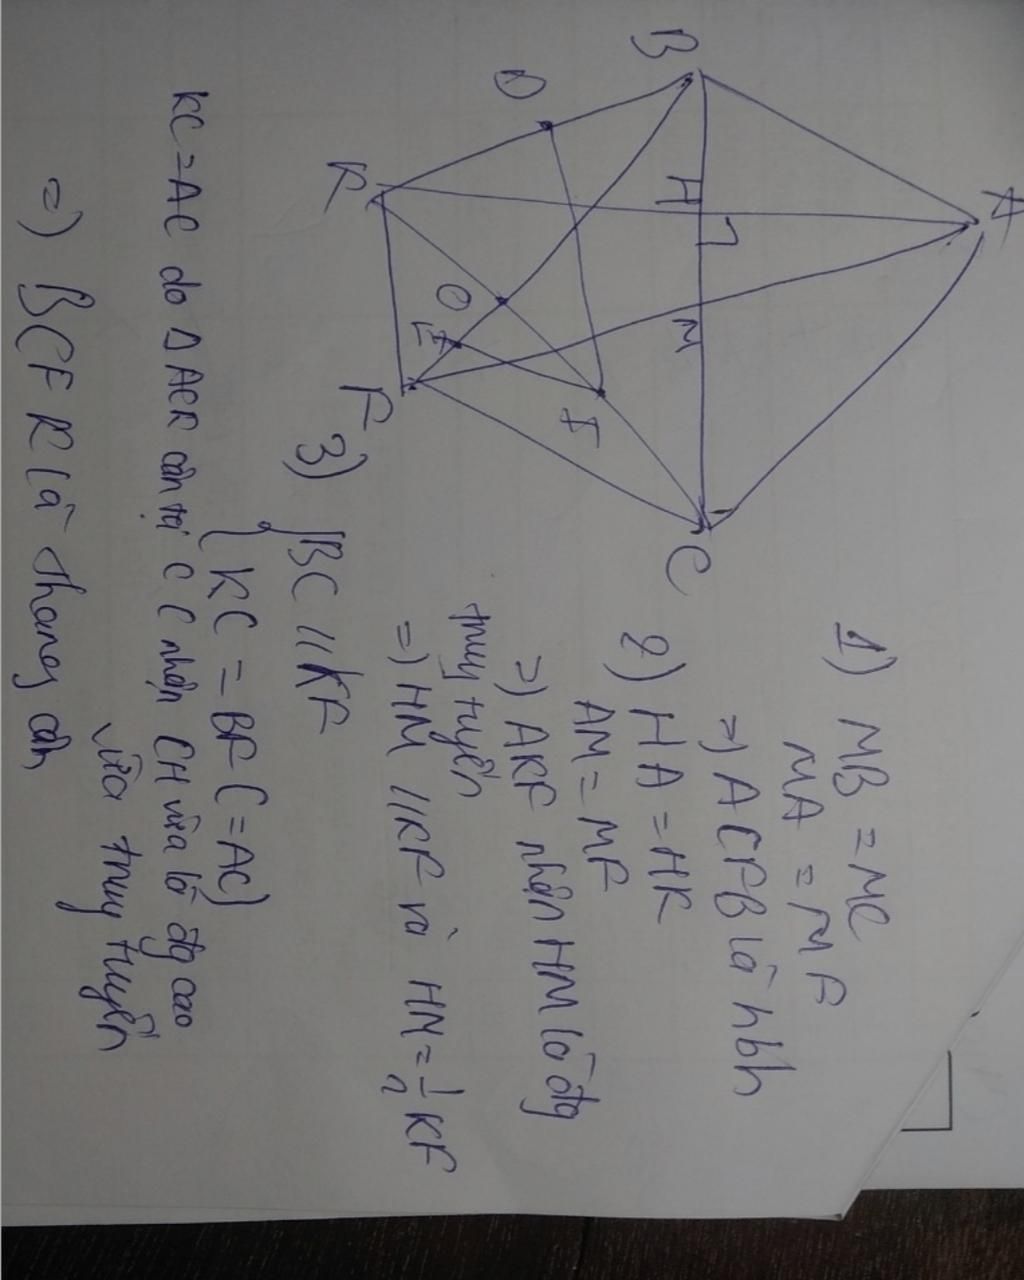 A
B
H
M
C
D
K
O
E
I
F
1) MB = MC
MA = MF
=) ACFB là hbh
2) HA = HK
AM = MF
=) AKF nhận HM là đg
trung tuyến
=) HM // KF và HM = 1/2 KF
3) { BC // KF
KC = BF (= AC)
KC = AC do Δ ACK cân tại C C nhận CH vừa là đg cao
vừa trung tuyến
=) BCFK là thang cân